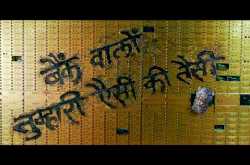 बैंक वालों
तुम्हारी ऐसी की तैसी